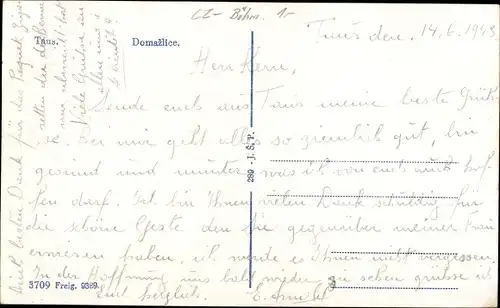 CZ- Böhm. 1-
Taus.
Domažlice.
Taus den, 14.6.1943
Herr Kern,
Sende euch aus Taus meine beste Grüs
se. Bei mir geht alles so ziemlich gut, bin
gesund und munter was ich von euch auch hof
fen darf. Ich bin Ihnen vielen Dank schuldig für
die schöne Geste den Sie gegenüber meiner Frau
erwiesen haben, ich werde es Ihnen nicht vergessen.
In der Hoffnung uns bald wieder zu sehen grüsse ich
Euch herzlich. E.
Auch besten Dank für das Paquet Ziga-
retten
Viele Grüsse an
289 - J. Š. P.
3709 Freig. 9389.